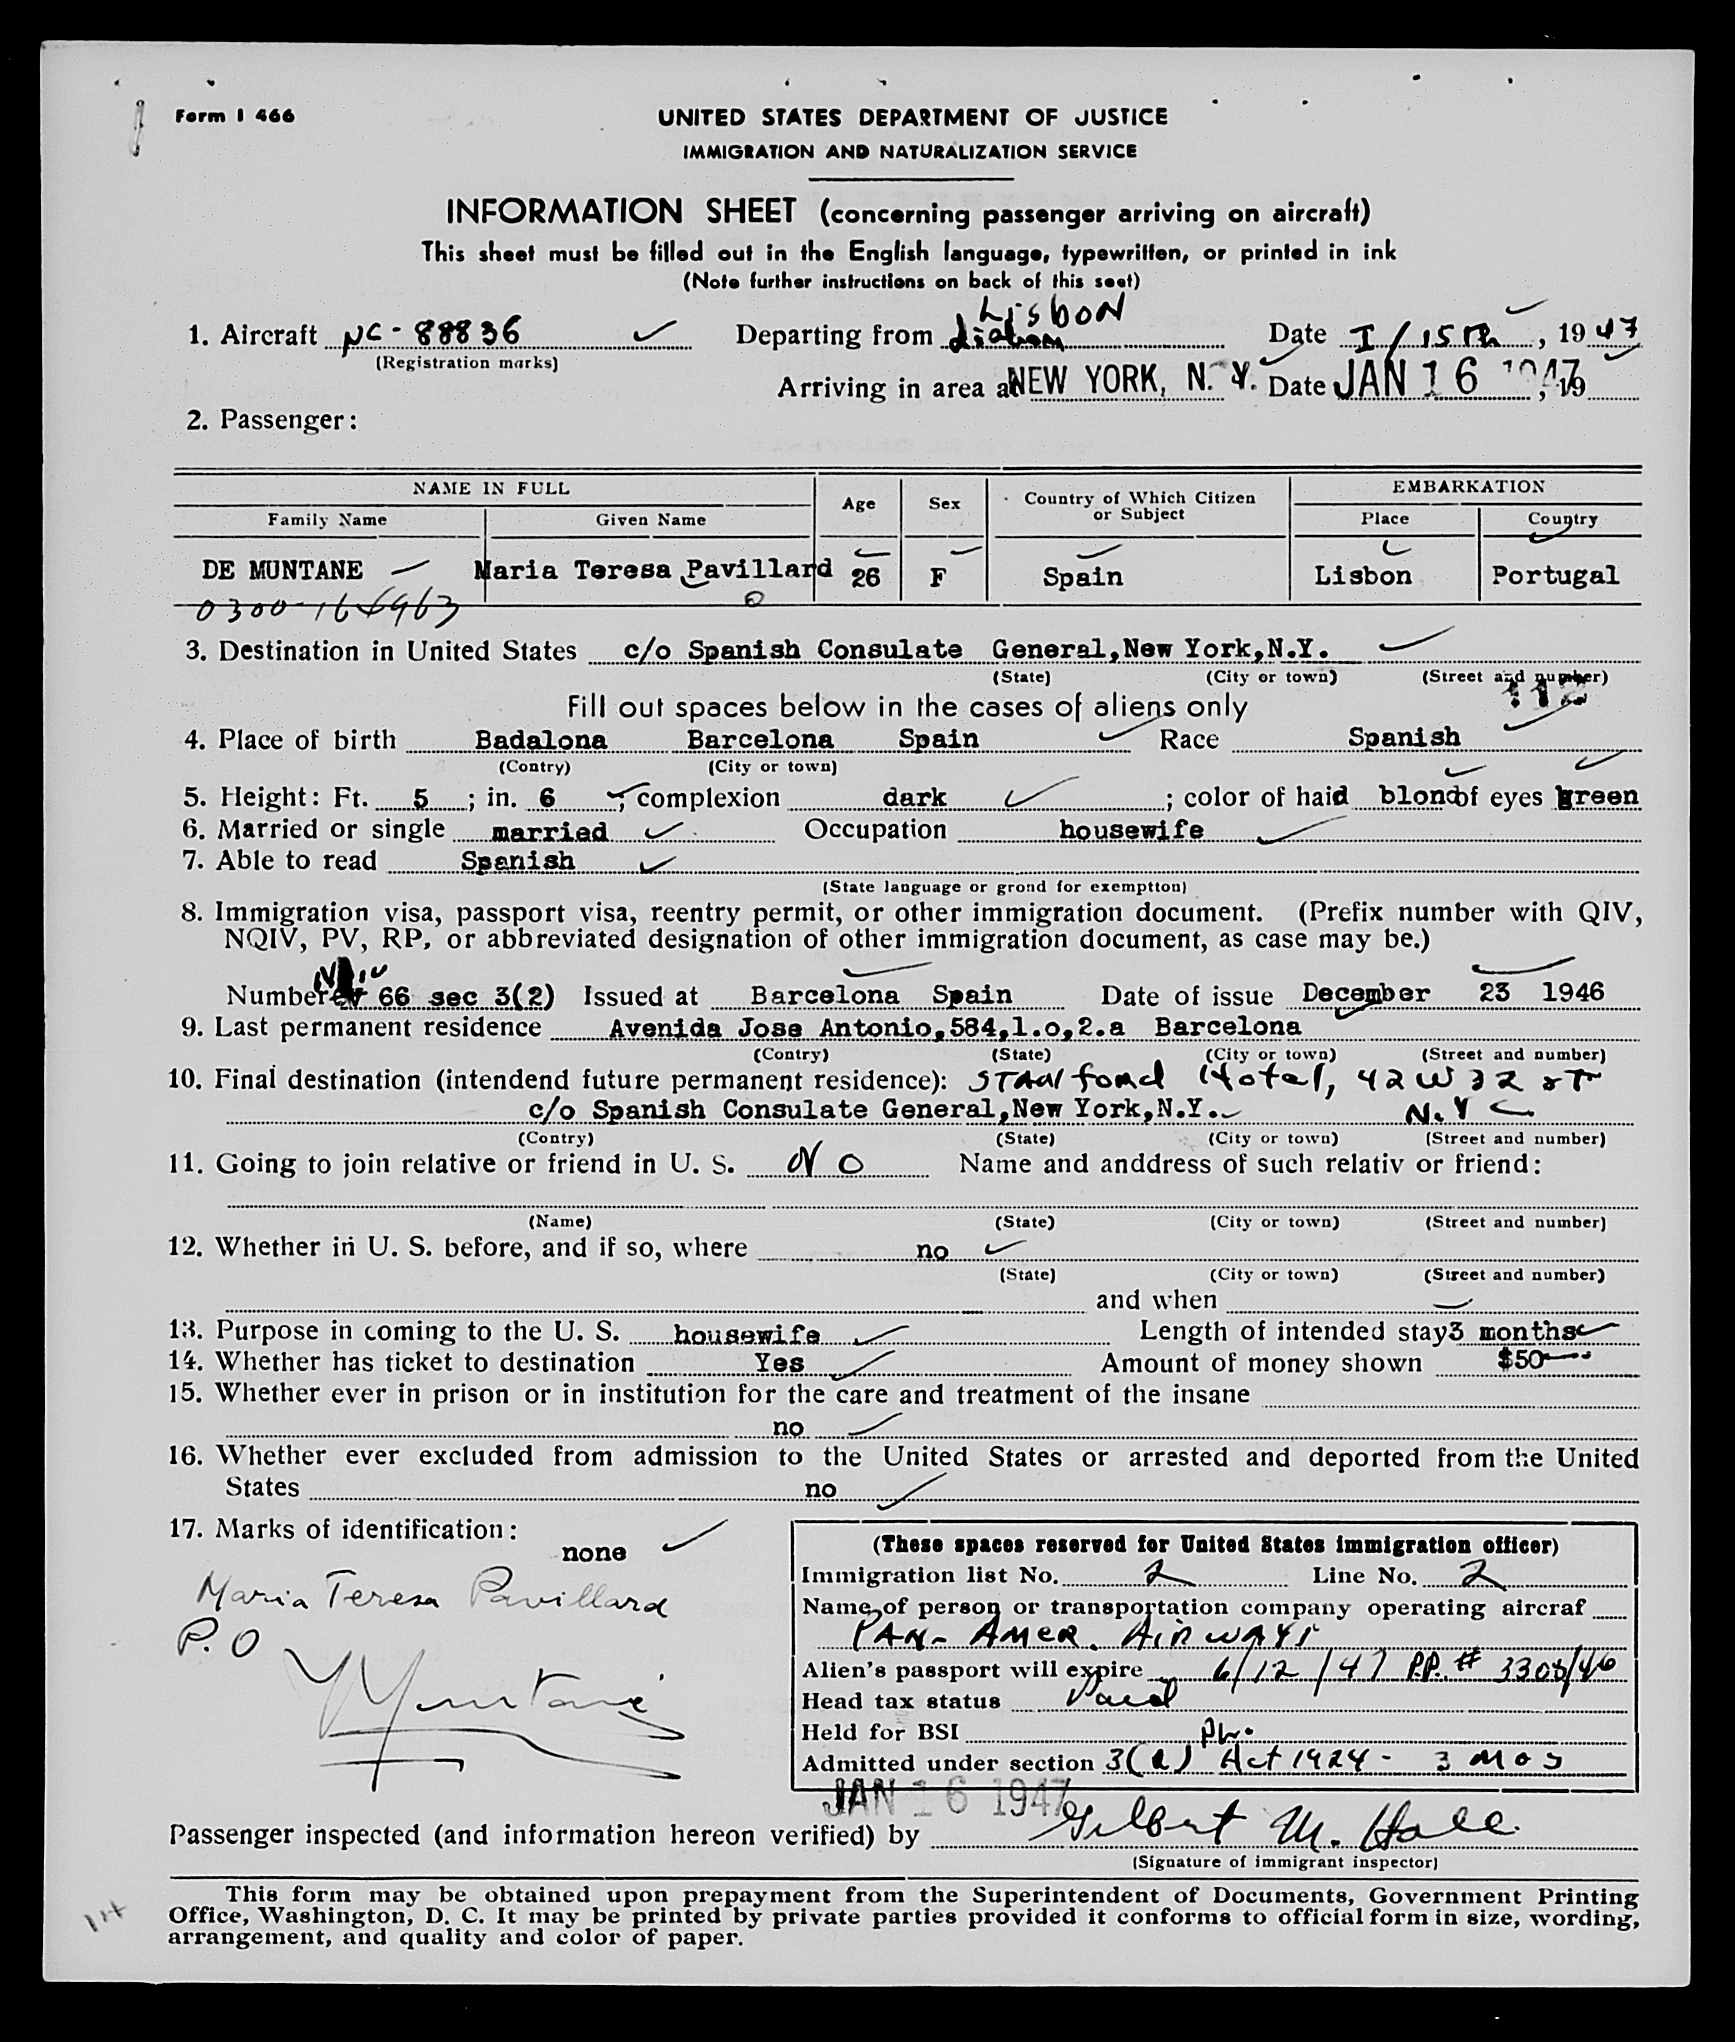 Form I 466
UNITED STATES DEPARTMENT OF JUSTICE
IMMIGRATION AND NATURALIZATION SERVICE
INFORMATION SHEET (concerning passenger arriving on aircraft)
This sheet must be filled out in the English language, typewritten, or printed in ink
(Note further instructions on back of this seet)
LisboN
1. Aircraft NC - 88836 Departing from Lisbon Date I / 15 th, 1947
(Registration marks)
Arriving in area at NEW YORK, N. Y. Date JAN 16 1947, 19
2. Passenger:
NAME IN FULL Age Sex Country of Which Citizen or Subject EMBARKATION
Family Name Given Name Place Country
DE MUNTANE Maria Teresa Pavillard 26 F Spain Lisbon Portugal
0300-
3. Destination in United States c/o Spanish Consulate General,New York,N.Y.
(State) (City or town) (Street and number)
112
Fill out spaces below in the cases of aliens only
4. Place of birth Badalona Barcelona Spain Race Spanish
(Contry) (City or town)
5. Height: Ft. 5 ; in. 6 ; complexion dark ; color of haid blond of eyes green
6. Married or single married Occupation housewife
7. Able to read Spanish
(State language or grond for exemptton)
8. Immigration visa, passport visa, reentry permit, or other immigration document. (Prefix number with QIV,
NQIV, PV, RP, or abbreviated designation of other immigration document, as case may be.)
Number 66 sec 3(2) Issued at Barcelona Spain Date of issue December 23 1946
9. Last permanent residence Avenida Jose Antonio,584,1.o,2.a Barcelona
(Contry) (State) (City or town) (Street and number)
10. Final destination (intendend future permanent residence): Hotel, 42 W 32 ST
c/o Spanish Consulate General,New York,N.Y. N.Y C
(Contry) (State) (City or town) (Street and number)
11. Going to join relative or friend in U. S. NO Name and anddress of such relativ or friend:
(Name) (State) (City or town) (Street and number)
12. Whether in U. S. before, and if so, where no
(State) (City or town) (Street and number)
and when
13. Purpose in coming to the U. S. housewife Length of intended stay 3 months
14. Whether has ticket to destination Yes Amount of money shown $50
15. Whether ever in prison or in institution for the care and treatment of the insane
no
16. Whether ever excluded from admission to the United States or arrested and deported from the United
States no
17. Marks of identification:
none
Maria Teresa Pavillard
P. O
Muntané
(These spaces reserved for United States immigration officer)
Immigration list No. 2 Line No. 2
Name of person or transportation company operating aircraf
PAN- AMER. AIRWAYS
Alien's passport will expire 6/12/47 P.P. # 3308/46
Head tax status Paid
Held for BSI
Admitted under section 3(2) Act 1924 - 3 mos
JAN 16 1947
Passenger inspected (and information hereon verified) by Gilbert M. Hall
(Signature of immigrant inspector)
This form may be obtained upon prepayment from the Superintendent of Documents, Government Printing
Office, Washington, D. C. It may be printed by private parties provided it conforms to official form in size, wording,
arrangement, and quality and color of paper.